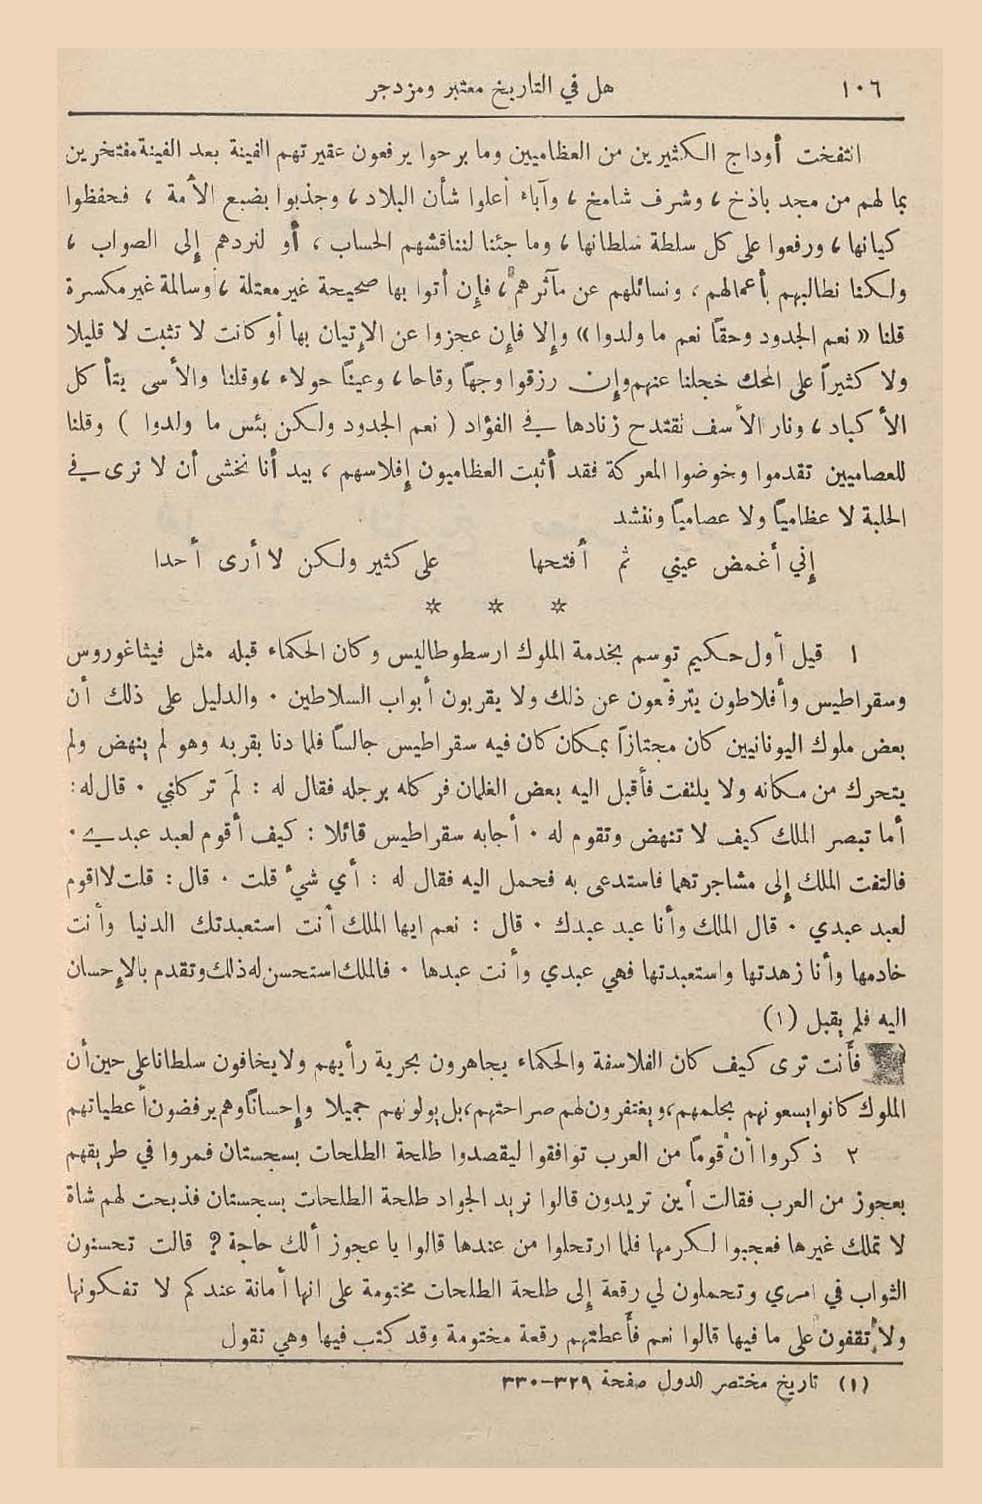 ١٠٦ هل في التاريخ معتبر ومزدجر
انتفخت أوداج الكثيرين من العظاميين وما برحوا يرفعون عقيرتهم الفينة بعد الفينة مفتخرين
بما لهم من مجد باذخ ، وشرف شامخ ، وآباء أعلوا شأن البلاد ، وجذبوا بضبع الأمة ، فحفظوا
كيانها ، ورفعوا على كل سلطة سلطانها ، وما جئنا لنناقشهم الحساب ، أو لنردهم إلى الصواب ،
ولكننا نطالبهم بأعمالهم ، ونسائلهم عن مآثرهم ، فإن أتوا بها صحيحة غير معتلة ، وسالمة غير مكسرة
قلنا « نعم الجدود وحقاً نعم ما ولدوا » وإلا فإن عجزوا عن الإتيان بها أو كانت لا تثبت لا قليلا
ولا كثيراً على المحك خجلنا عنهم وإن رزقوا وجهاً وقاحا ، وعيناً حولاء ، وقلنا والأسى يتأكل
الأكباد ، ونار الأسف تقتدح زنادها في الفؤاد ( نعم الجدود ولكن بئس ما ولدوا ) وقلنا
للعصاميين تقدموا وخوضوا المعركة فقد أثبت العظاميون إفلاسهم ، بيد أنا نخشى أن لا نرى في
الحلبة لا عظامياً ولا عصامياً وننشد
إني أغمض عيني ثم أفتحها على كثير ولكن لا أرى أحدا
* * *
١ قيل أول حكيم توسم بخدمة الملوك ارسطوطاليس وكان الحكماء قبله مثل فيثاغوروس
وسقراطيس وأفلاطون يترفّعون عن ذلك ولا يقربون أبواب السلاطين . والدليل على ذلك أن
بعض ملوك اليونانيين كان مجتازاً بمكان كان فيه سقراطيس جالساً فلما دنا بقربه وهو لم ينهض ولم
يتحرك من مكانه ولا يلتفت فأقبل اليه بعض الغلمان فركله برجله فقال له : لمَ تركلني . قال له :
أما تبصر الملك كيف لا تنهض وتقوم له . أجابه سقراطيس قائلا : كيف أقوم لعبد عبدي .
فالتفت الملك إلى مشاجرتهما فاستدعى به فحمل اليه فقال له : أي شيء قلت . قال : قلت لا اقوم
لعبد عبدي . قال الملك وأنا عبد عبدك . قال : نعم ايها الملك أنت استعبدتك الدنيا وأنت
خادمها وأنا زهدتها واستعبدتها فهي عبدي وأنت عبدها . فالملك استحسن له ذلك وتقدم بالإحسان
اليه فلم يقبل (١)
فأنت ترى كيف كان الفلاسفة والحكماء يجاهرون بحرية رأيهم ولا يخافون سلطانا على حين أن
الملوك كانوا يسعونهم بحلمهم ، ويغتفرون لهم صراحتهم ، بل يولونهم جميلا وإحساناً وهم يرفضون أعطياتهم
٢ ذكروا أن قوماً من العرب توافقوا ليقصدوا طلحة الطلحات بسجستان فمروا في طريقهم
بعجوز من العرب فقالت أين تريدون قالوا نريد الجواد طلحة الطلحات بسجستان فذبحت لهم شاة
لا تملك غيرها فعجبوا لكرمها فلما ارتحلوا من عندها قالوا يا عجوز ألك حاجة ؟ قالت تحسنون
الثواب في امري وتحملون لي رقعة إلى طلحة الطلحات مختومة على انها أمانة عندكم لا تفكونها
ولا تقفون على ما فيها قالوا نعم فأعطتهم رقعة مختومة وقد كتب فيها وهي تقول
(١) تاريخ مختصر الدول صفحة ٣٢٩-٣٣٠